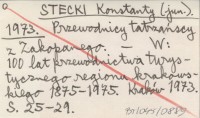 STECKI Konstanty (jun.)
1973. Przewodnicy tatrzańscy
z Zakopanego. — W:
100 lat przewodnictwa turys-
tycznego regionu krakows-
kiego 1875-1975. Kraków 1973.
S. 25-29.